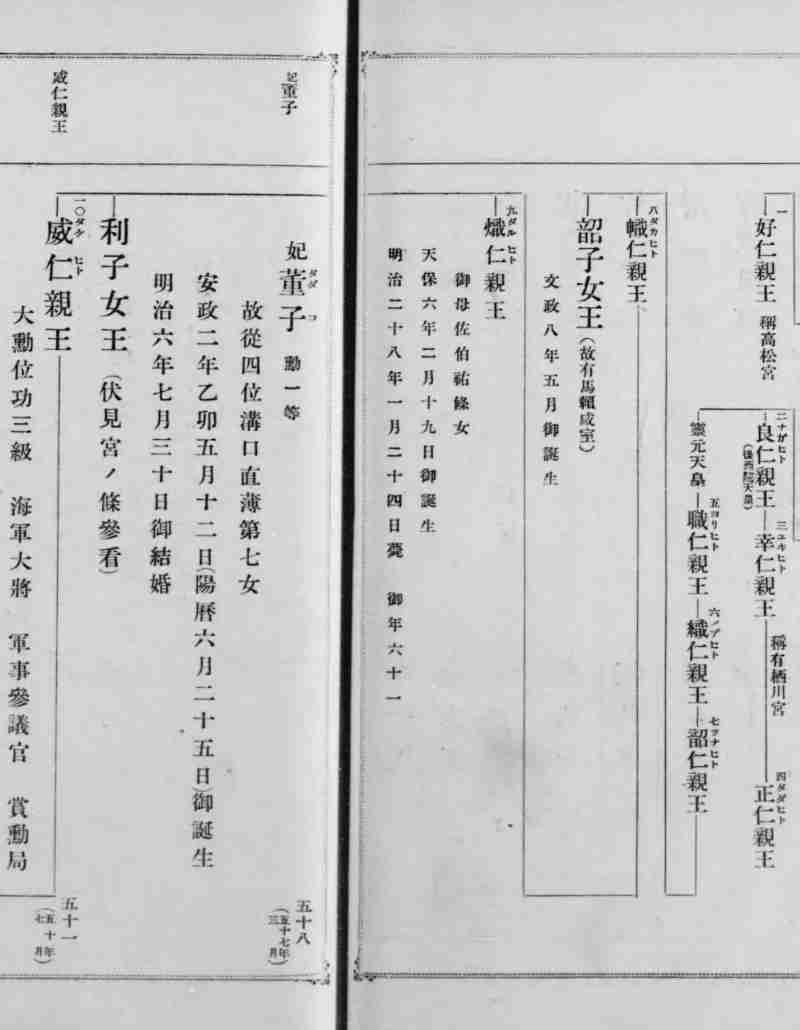 一
好仁親王 稱高松宮
二ナガヒト
良仁親王
(後西院天皇)
三ユキヒト
幸仁親王
稱有栖川宮
四タダヒト
正仁親王
靈元天皇
五ヨリヒト
職仁親王
六ノブヒト
織仁親王
七ツナヒト
韶仁親王
八タカヒト
幟仁親王
韶子女王(故有馬賴咸室)
文政八年五月御誕生
九タルヒト
熾仁親王
御母佐伯祐條女
天保六年二月十九日御誕生
明治二十八年一月二十四日薨 御年六十一
妃董子
妃董子 勳一等
タダコ
五十八
(五十七年三月)
故從四位溝口直薄第七女
安政二年乙卯五月十二日(陽曆六月二十五日)御誕生
明治六年七月三十日御結婚
利子女王 (伏見宮ノ條參看)
威仁親王
一〇タケヒト
威仁親王
五十一
(五十年七月)
大勳位功三級 海軍大將 軍事參議官 賞勳局